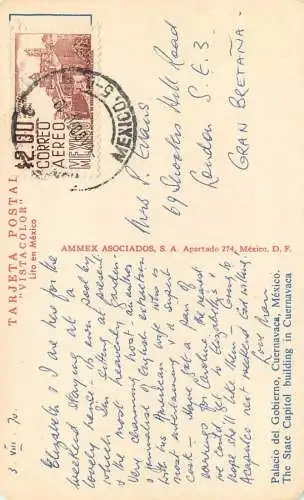 TARJETA POSTAL
"VISTACOLOR"
Lito en México
$2.00
CORREO
AEREO
MEXICO
MEXICO 5
3. VIII 70.
Elizabeth & I are here for the
weekend staying at a
lovely
which. sitting at present
in the most heavenly garden.
Very charming host - author
& journalist of English extraction
with his American wife who is
most entertaining & a superb
cook - Have got a pair of
earrings for Caroline the nearest
could get to Elizabeth's
hope she'll like them - Going to
Acapulco next weekend God willing.
Love
AMMEX ASOCIADOS, S. A. Apartado 274, México, D. F.
Mrs P. Evans
69 Shooters Hill Road
London S.E.3.
GRAN BRETAÑA.
Palacio del Gobierno, Cuernavaca, México.
The State Capitol building in Cuernavaca